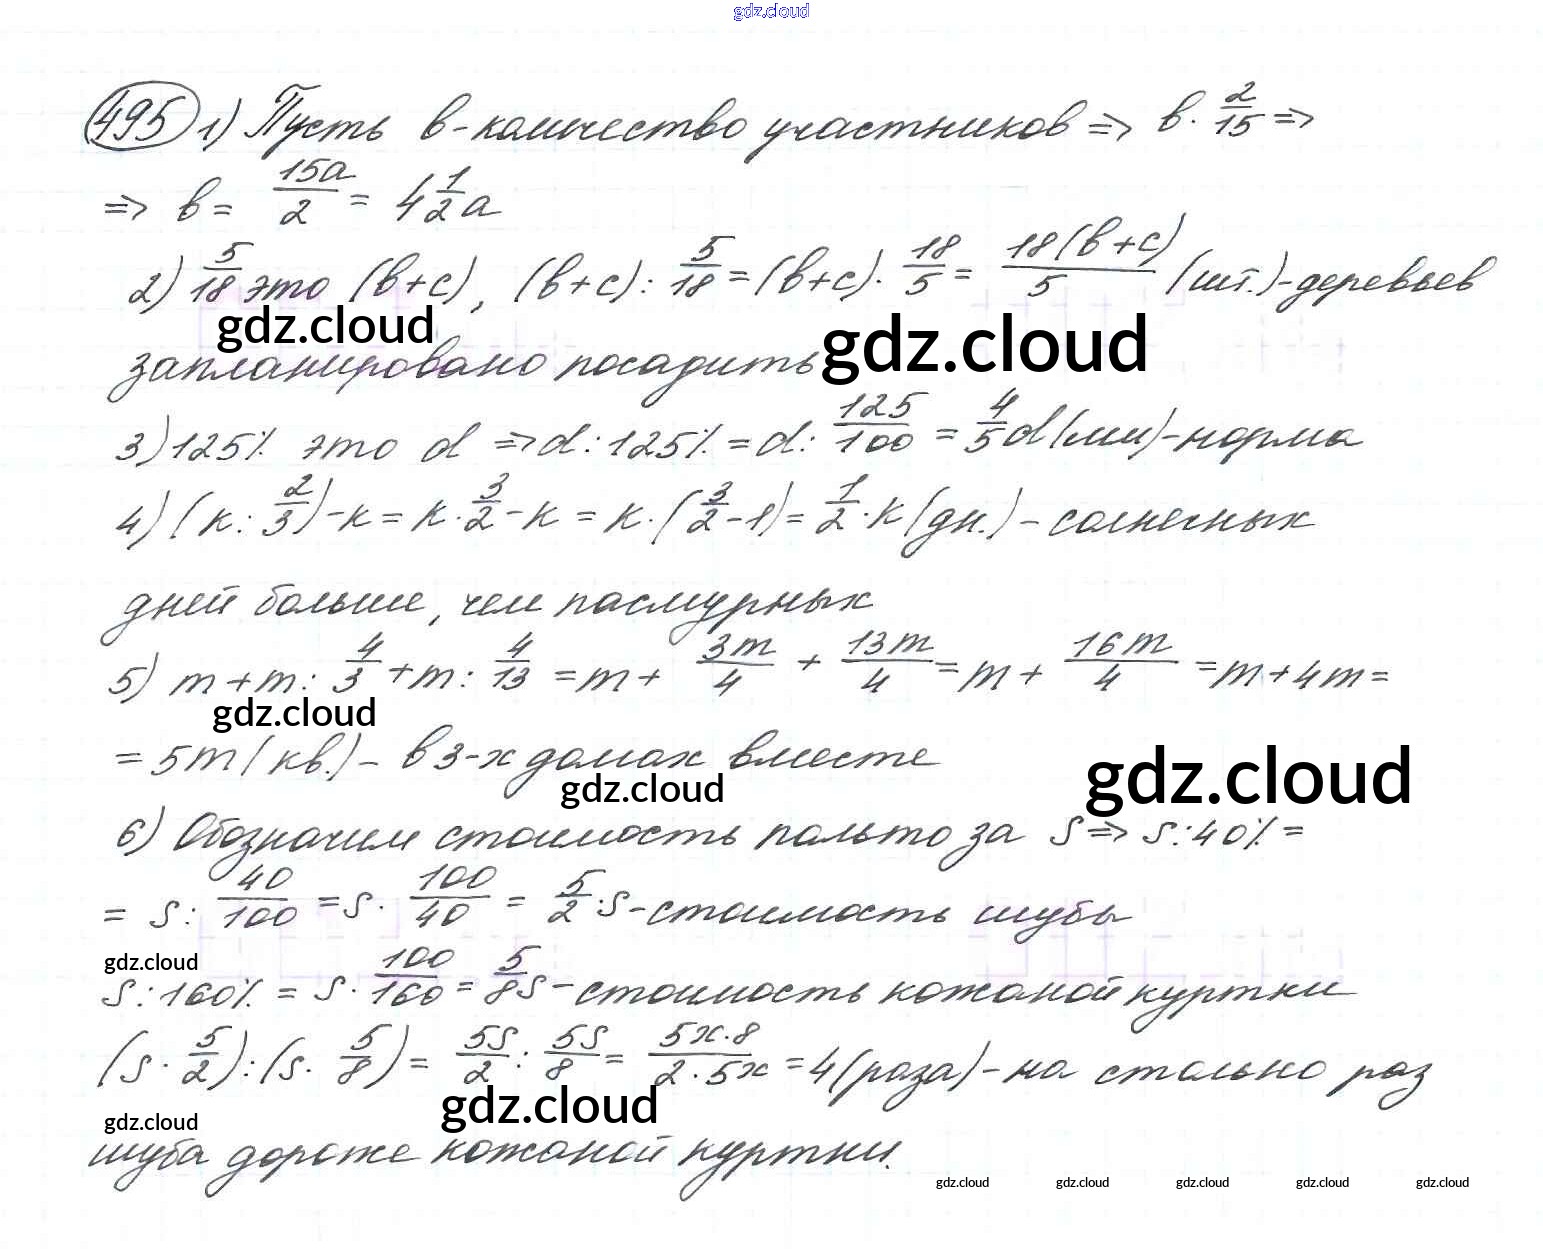 gdz.cloud
495 1) Пусть в - количество участников => в · 2/15 =>
=> в = 15a/2 = 4 1/2 a
2) 5/18 это (в+с), (в+с) : 5/18 = (в+с) · 18/5 = 18(в+с)/5 (шт.) - деревьев
gdz.cloud
запланировано посадить
gdz.cloud
3) 125% это d => d : 125% = d : 125/100 = 4/5 d (мм) - норма
4) (к : 2/3) - к = к · 3/2 - к = к · (3/2 - 1) = 1/2 · к (дн.) - солнечных
дней больше, чем пасмурных
5) m + m : 4/3 + m : 4/13 = m + 3m/4 + 13m/4 = m + 16m/4 = m + 4m =
gdz.cloud
= 5m (кв.) - в 3-х домах вместе
gdz.cloud
gdz.cloud
6) Обозначим стоимость пальто за S => S : 40% =
= S : 40/100 = S · 100/40 = 5/2 · S - стоимость шубы
gdz.cloud
S : 160% = S · 100/160 = 5/8 S - стоимость кожаной куртки
(S · 5/2) : (S · 5/8) = 5S/2 : 5S/8 = 5х·8/2·5х = 4 (раза) - на столько раз
gdz.cloud
gdz.cloud
шуба дороже кожаной куртки.
gdz.cloud gdz.cloud gdz.cloud gdz.cloud gdz.cloud